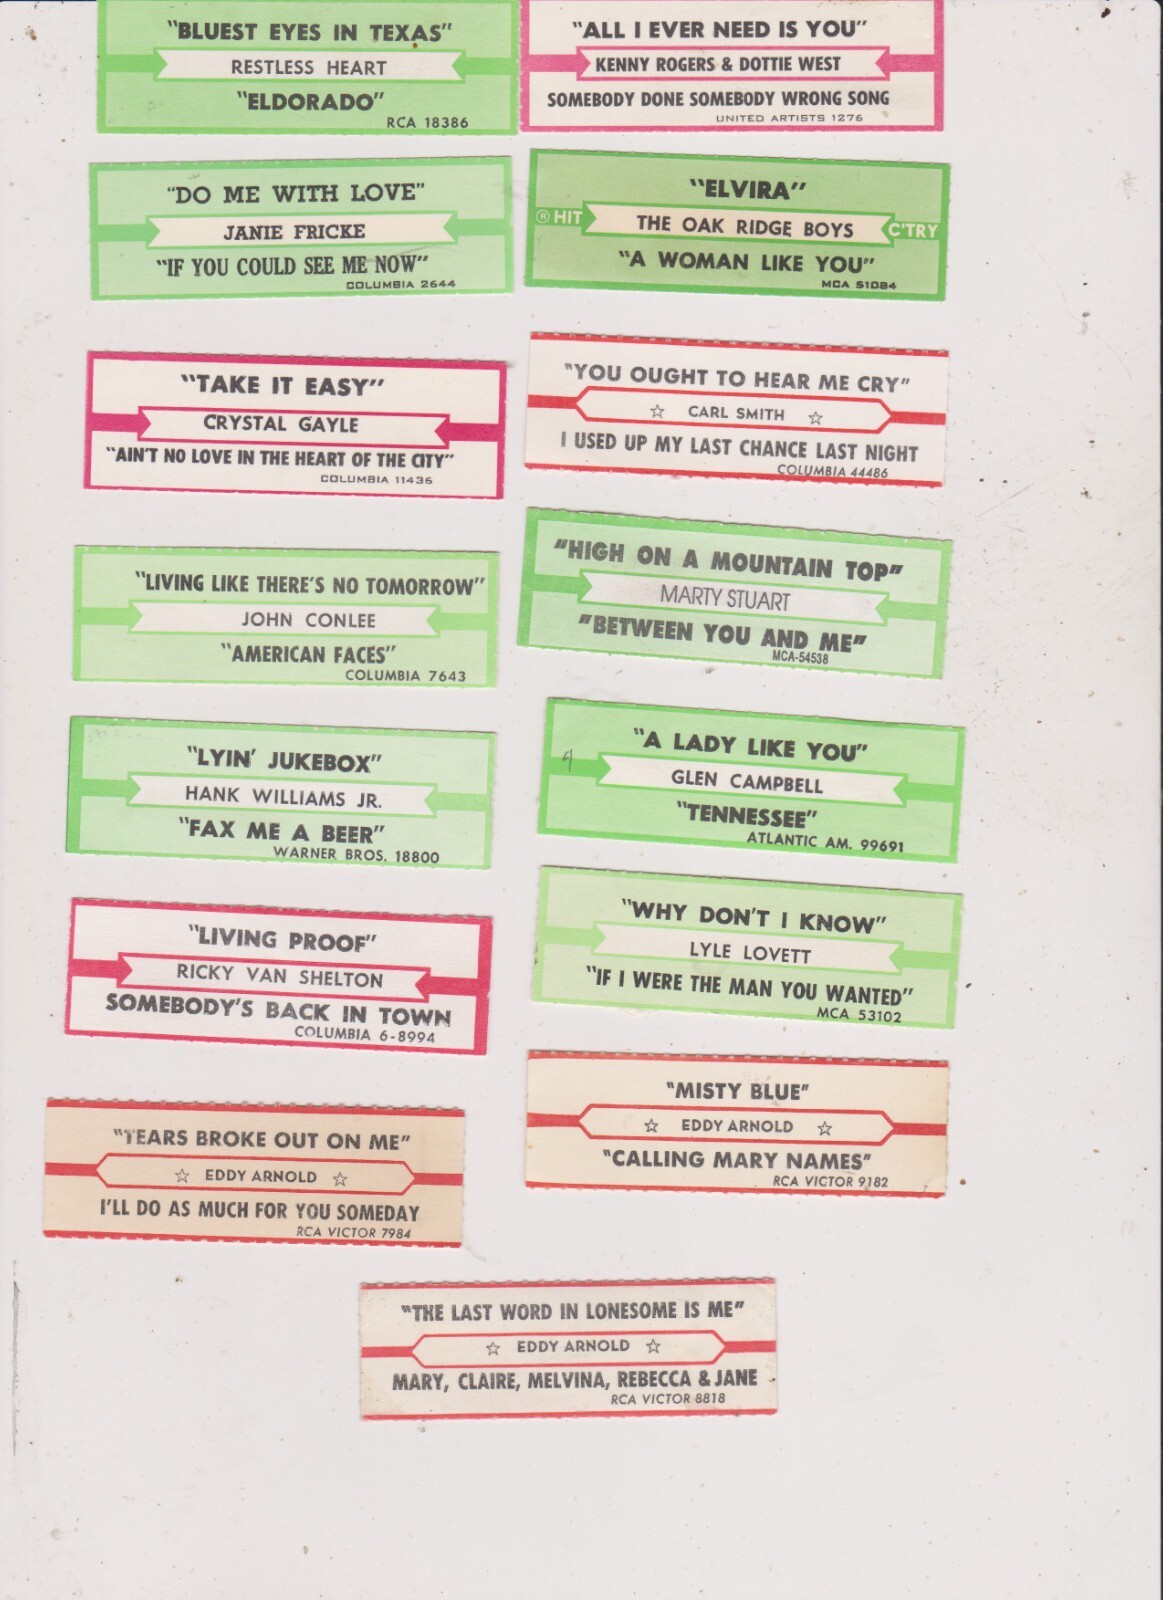 "BLUEST EYES IN TEXAS"
RESTLESS HEART
"ELDORADO"
RCA 18386
"ALL I EVER NEED IS YOU"
KENNY ROGERS & DOTTIE WEST
SOMEBODY DONE SOMEBODY WRONG SONG
UNITED ARTISTS 1276
"DO ME WITH LOVE"
JANIE FRICKE
"IF YOU COULD SEE ME NOW"
COLUMBIA 2644
"ELVIRA"
® HIT THE OAK RIDGE BOYS C'TRY
"A WOMAN LIKE YOU"
MCA 51084
"TAKE IT EASY"
CRYSTAL GAYLE
"AIN'T NO LOVE IN THE HEART OF THE CITY"
COLUMBIA 11436
"YOU OUGHT TO HEAR ME CRY"
☆ CARL SMITH ☆
I USED UP MY LAST CHANCE LAST NIGHT
COLUMBIA 44486
"LIVING LIKE THERE'S NO TOMORROW"
JOHN CONLEE
"AMERICAN FACES"
COLUMBIA 7643
"HIGH ON A MOUNTAIN TOP"
MARTY STUART
"BETWEEN YOU AND ME"
MCA-54538
"LYIN' JUKEBOX"
HANK WILLIAMS JR.
"FAX ME A BEER"
WARNER BROS. 18800
"A LADY LIKE YOU"
GLEN CAMPBELL
"TENNESSEE"
ATLANTIC AM. 99691
"LIVING PROOF"
RICKY VAN SHELTON
SOMEBODY'S BACK IN TOWN
COLUMBIA 6-8994
"WHY DON'T I KNOW"
LYLE LOVETT
"IF I WERE THE MAN YOU WANTED"
MCA 53102
"TEARS BROKE OUT ON ME"
☆ EDDY ARNOLD ☆
I'LL DO AS MUCH FOR YOU SOMEDAY
RCA VICTOR 7984
"MISTY BLUE"
☆ EDDY ARNOLD ☆
"CALLING MARY NAMES"
RCA VICTOR 9182
"THE LAST WORD IN LONESOME IS ME"
☆ EDDY ARNOLD ☆
MARY, CLAIRE, MELVINA, REBECCA & JANE
RCA VICTOR 8818